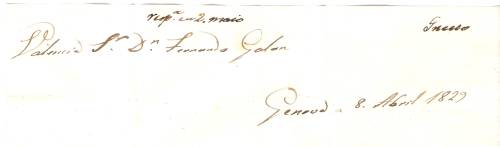 resp.ª en 2. maio
Valencia S.r D.n Fernando Galan
Genova 8. Abril 1829